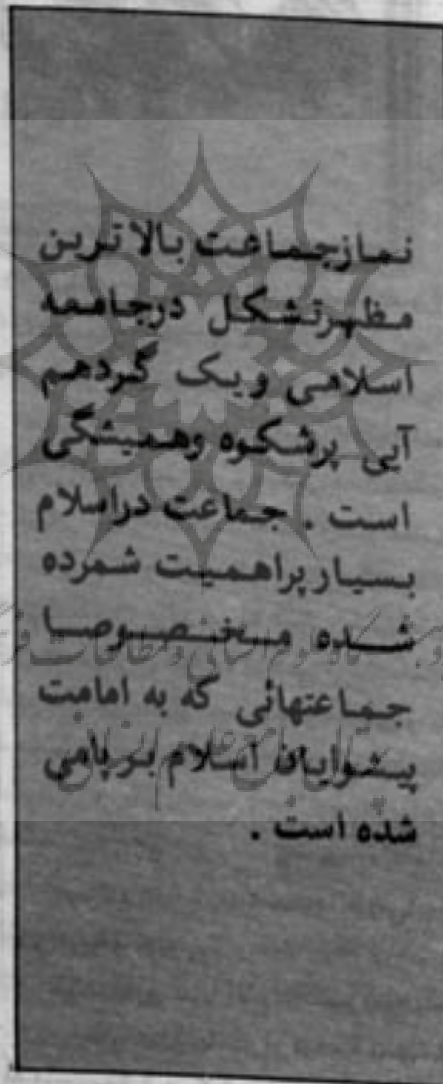 نمازجماعت بالاترین
مظهرتشکل درجامعه
اسلامی ویک گردهم
آیی پرشکوه وهمیشگی
است . جماعت دراسلام
بسیارپراهمیت شمرده
شده مخصوصا
جماعتهائی که به امامت
پیشوایان اسلام برپامی
شده است .